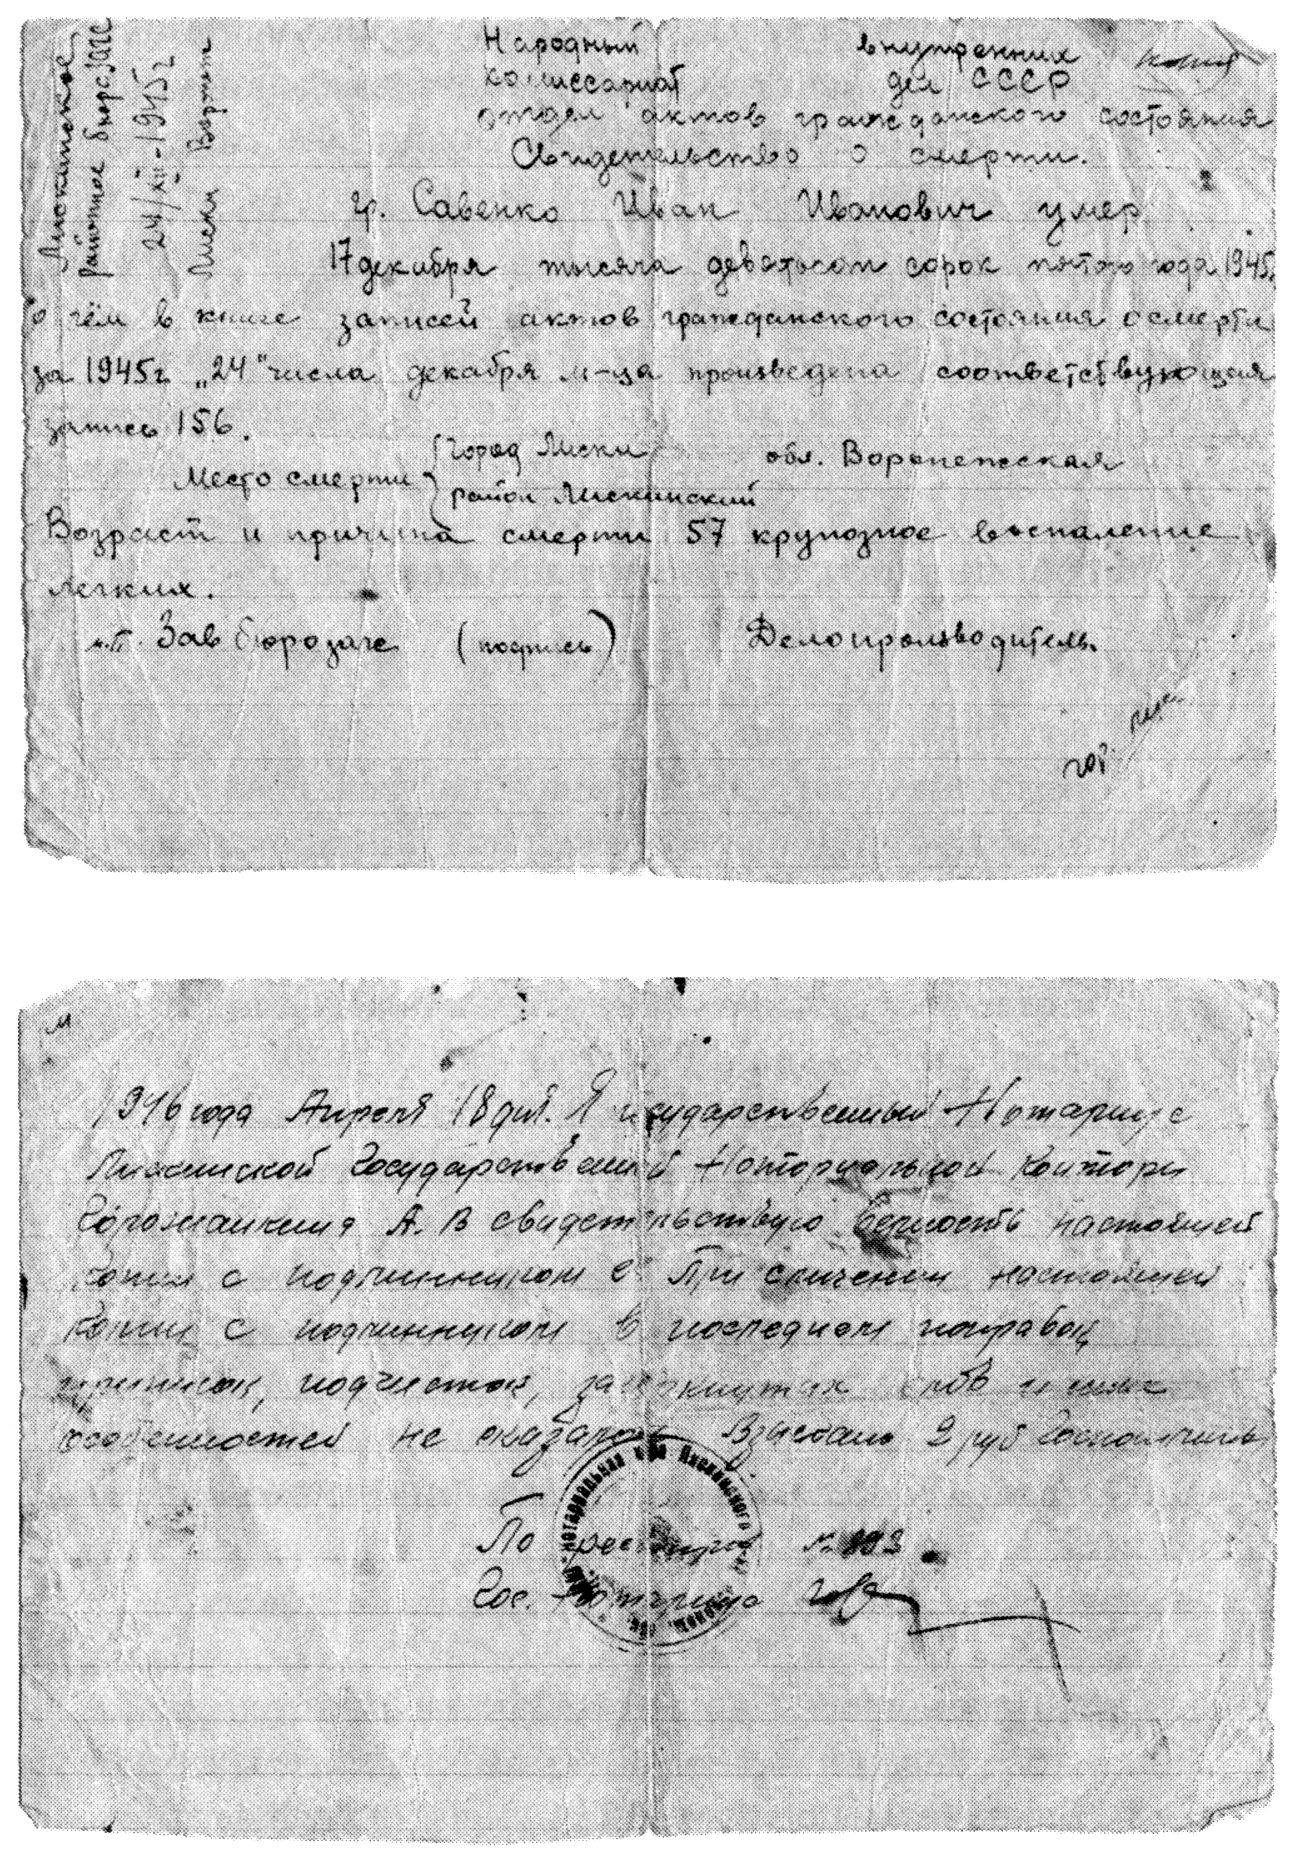 Народный внутренних копия
комиссариат дел СССР
отдел актов гражданского состояния
Свидетельство о смерти.
Лискинское
районное бюро загс
24/XII-1945г
Лиски Ворон
гр. Савенко Иван Иванович умер
17 декабря тысяча девятьсот сорок пятого года 1945г.
о чём в книге записей актов гражданского состояния о смерти
за 1945г. „24" числа декабря м-ца произведена соответствующая
запись 156.
Место смерти { город Лиски обл. Воронежская
район Лискинский
Возраст и причина смерти 57 крупозное воспаление
легких.
м.п. Зав бюрозагс (подпись) Делопроизводитель.
гор.
м
1946 года Апреля 18 дня. Я государственный Нотариус
Лискинской Государственной Нотариальной Конторы
А. В свидетельствую верность настоящей
копии с подлинником При сличении настоящей
копии с подлинником в последнем поправок
приписок, подчисток, зачеркнутых слов и иных
особенностей не оказалось Взыскано 2 руб Госпошлины
По реестру №
Гос. Нотариус
нотариальная Лискинского